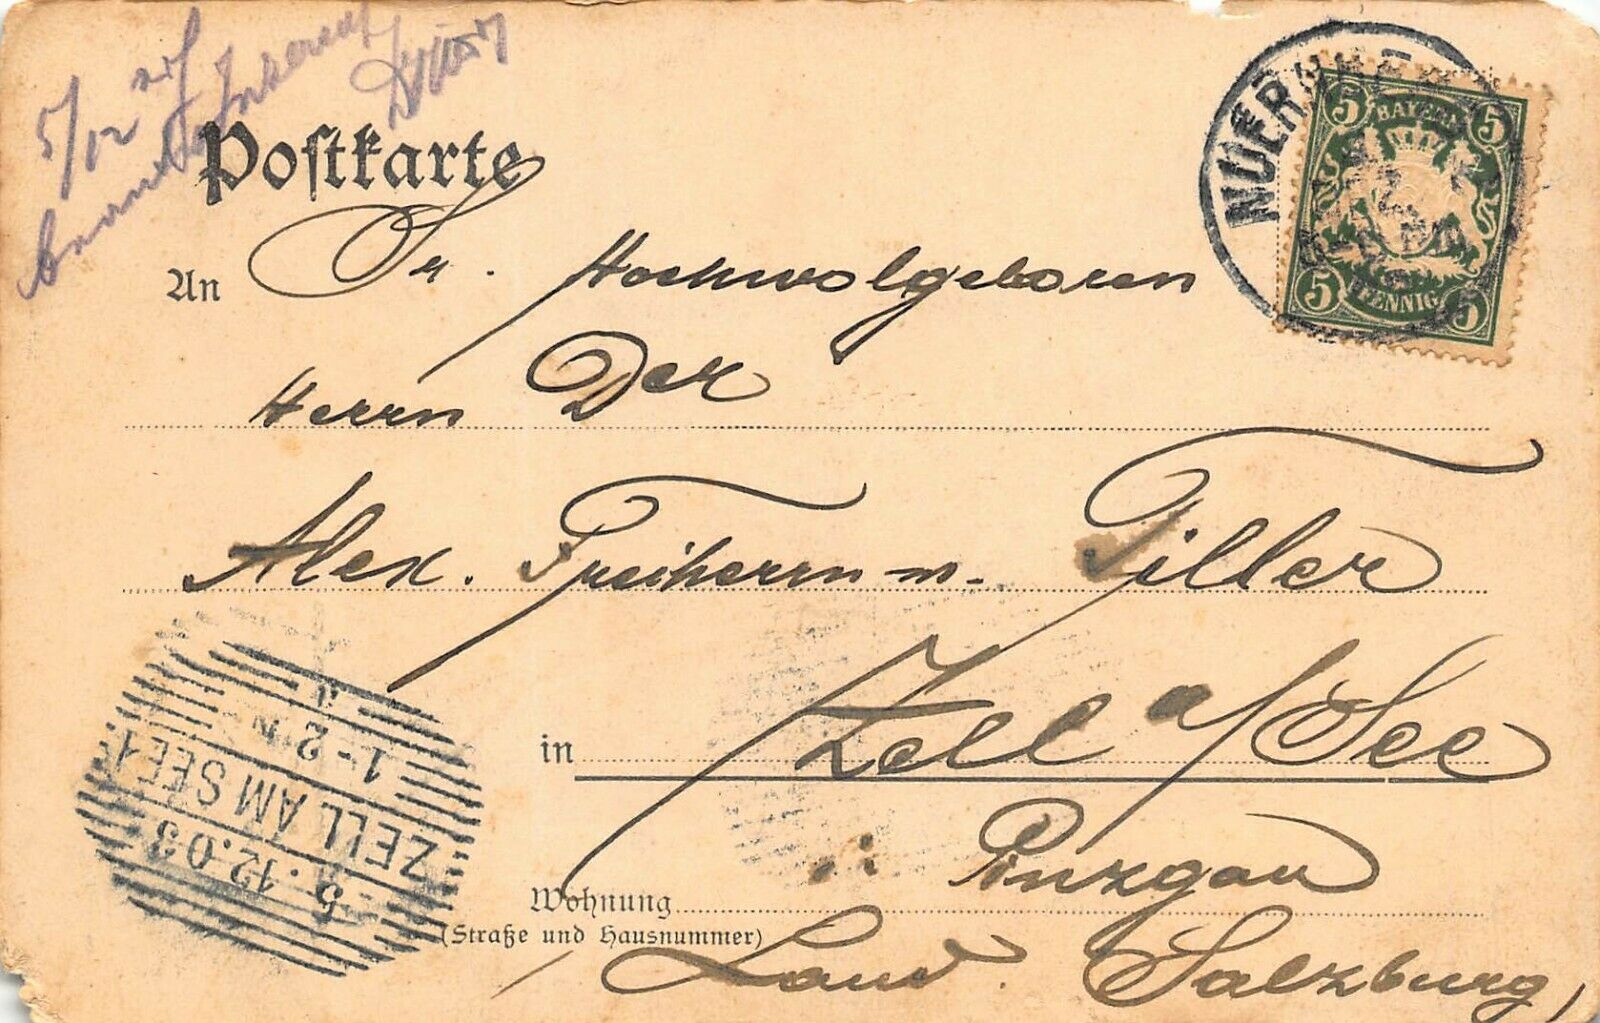 5/12
Postkarte
NUERNBERG
5 BAYERN 5
5 PFENNIG 5
An Sr. Hochwolgeboren
Herrn Der
Alex. Freiherrn v. Tiller
in Zell a/See
Pinzgau
Wohnung
(Straße und Hausnummer)
Land Salzburg
5.12.03
ZELL AM SEE 1
1-2 N